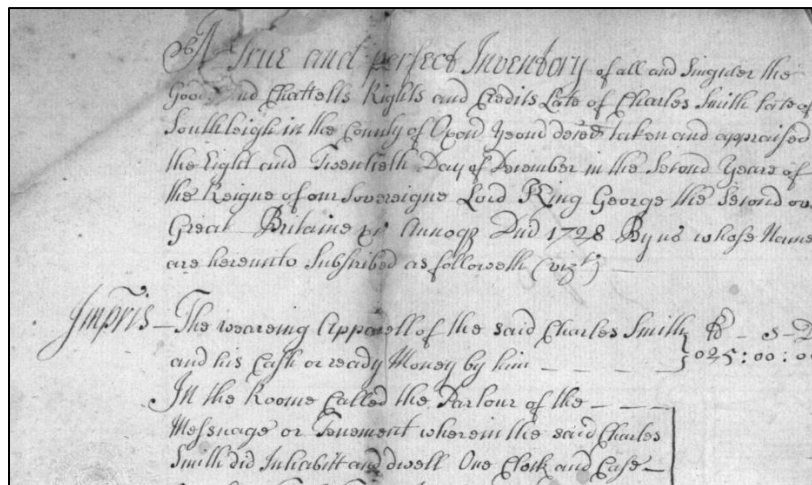 A True and perfect Inventory of all and Singuler the
Goods and Chattells Rights and Credits Late of Charles Smith late of
Southleigh in the County of Oxon Yeom deced taken and appraised
the Eight and Twentieth Day of December in the Second Yeare of
the Reigne of our Sovereigne Lord King George the Second ov
Great Britaine &c Annoqz Dnd 1728 By us whose Name
are hereunto Subscribed as followeth (vizt)
Impris The weareing Apparell of the said Charles Smith £ - s - D
and his Cash or ready Money by him 025:00:00
In the Roome Called the Parlour of the
Messuage or Tenement wherein the said Charles
Smith did Inhabitt and dwell One Clock and Case